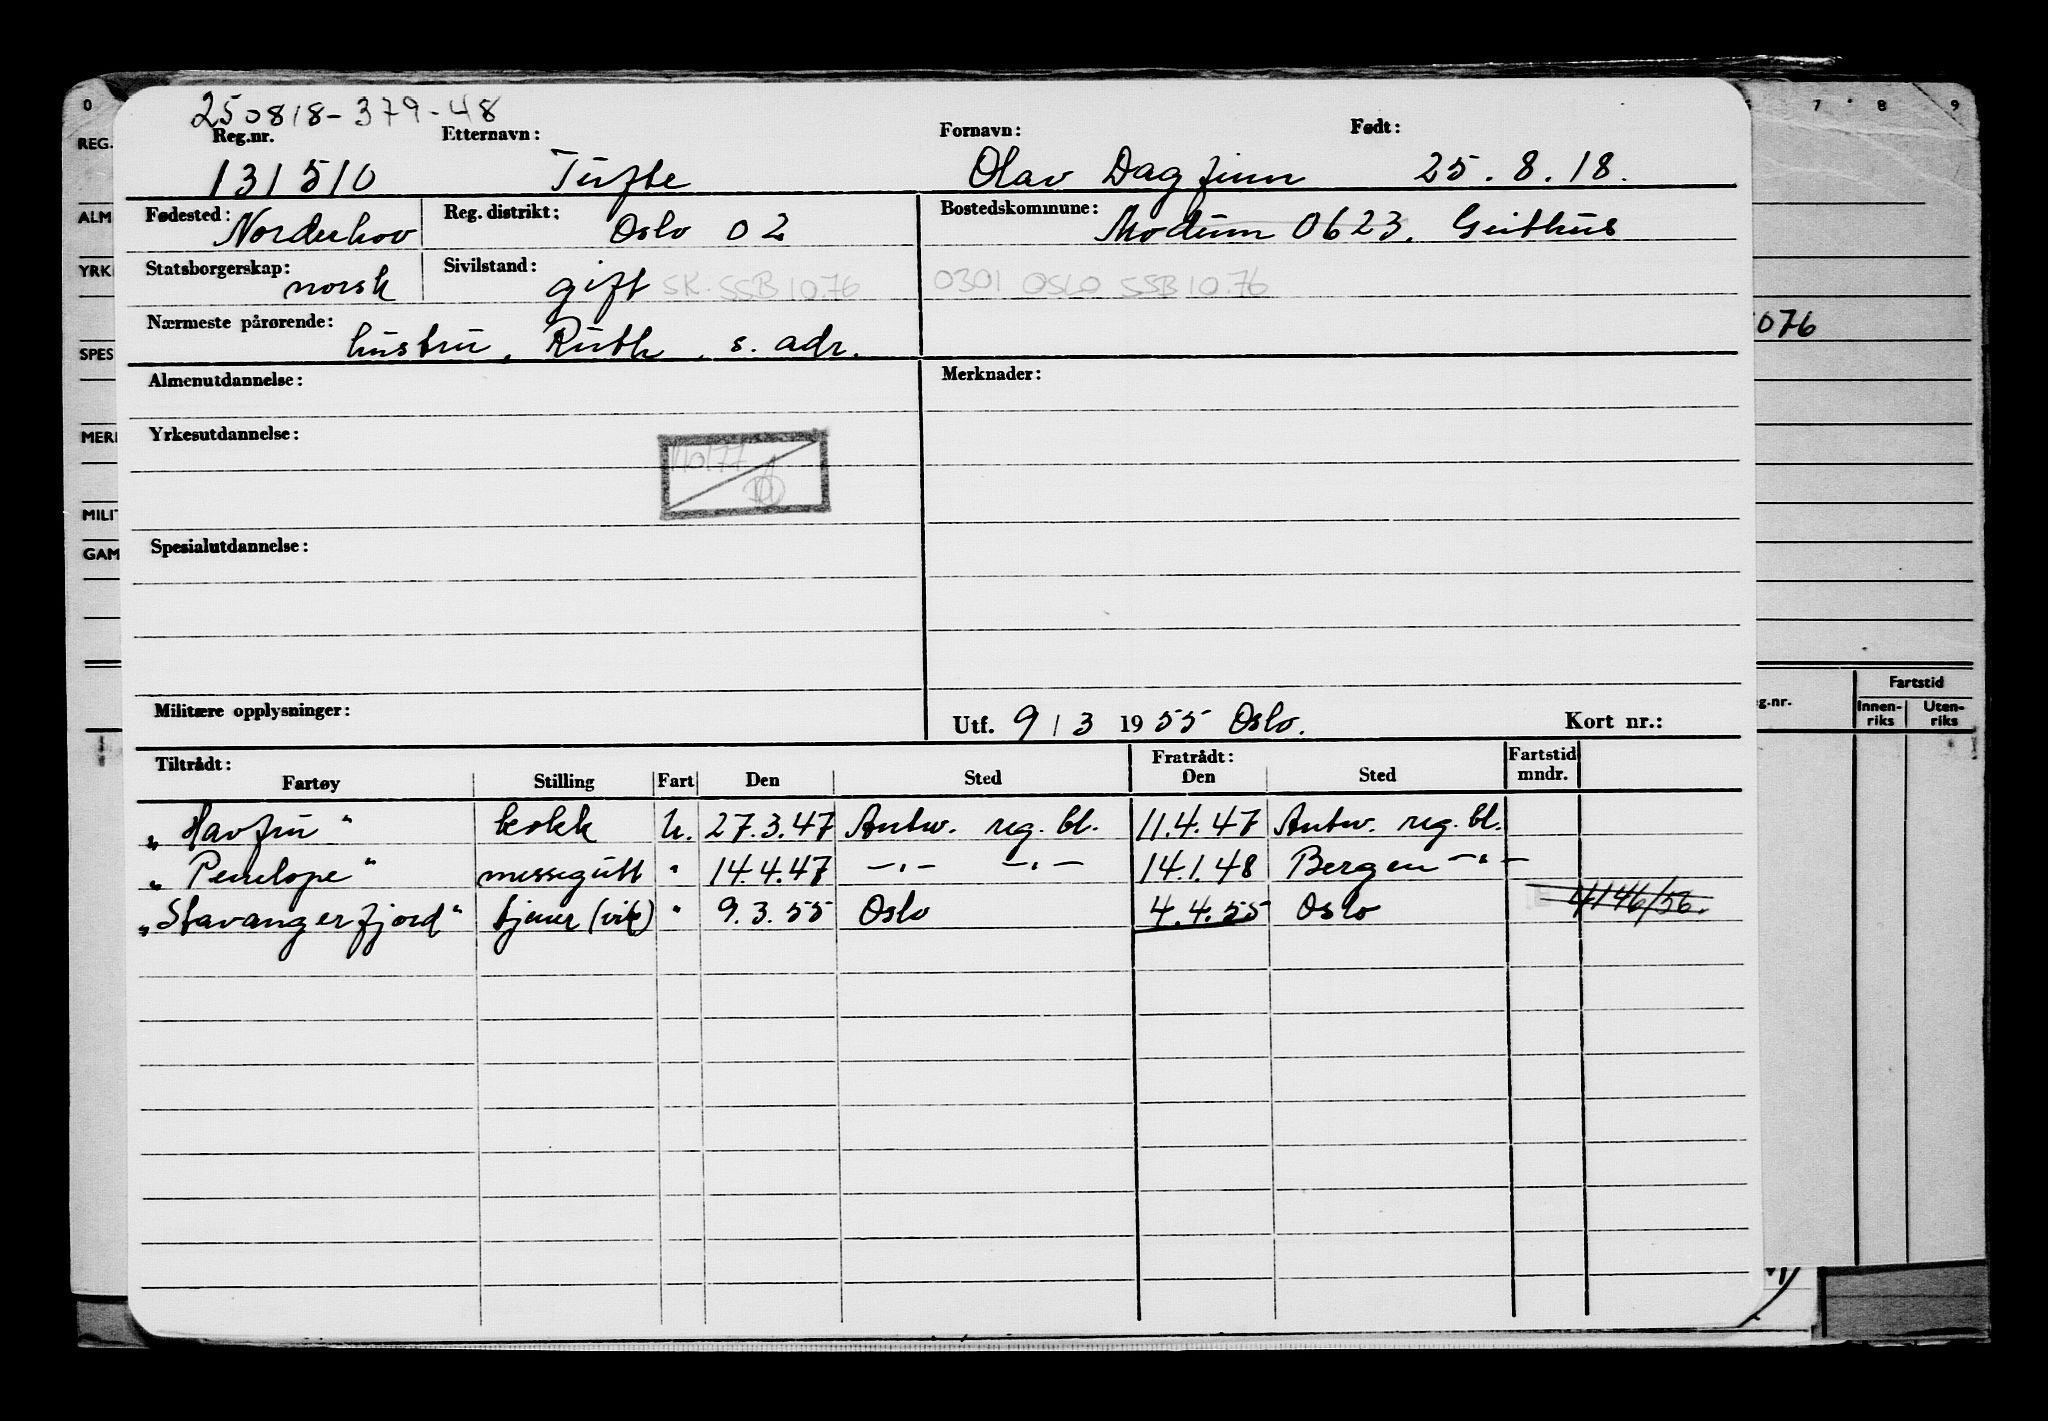 250818-379-48
Reg.nr. Etternavn: Fornavn: Født:
131510 Tufte Olav Dagfinn 25.8.18.
Fødested: Norderhov Reg. distrikt: Oslo 02 Bostedskommune: Modum 0623. Geithus
Statsborgerskap: norsk Sivilstand: gift SK. SSB 10.76 0301 OSLO SSB 10.76
Nærmeste pårørende: hustru, Ruth, s. adr.
Almenutdannelse: Merknader:
Yrkesutdannelse:
Spesialutdannelse:
Militære opplysninger: Utf. 9/3 1955 Oslo. Kort nr.:
Tiltrådt: Fratrådt: Fartstid
Fartøy Stilling Fart Den Sted Den Sted mndr.
„Havfru" kokk U. 27.3.47 Antw. reg. bl. 11.4.47 Antw. reg. bl.
„Penelope" messegutt " 14.4.47 —"— —"— 14.1.48 Bergen —"—
„Stavangerfjord" tjener (vik) " 9.3.55 Oslo 4.4.55 Oslo 4146/56.
0 7 8 9
REG.
ALM
YRK
SPES
MER
MILIT
GAM
076
g.nr. Fartstid
Innen-riks Uten-riks